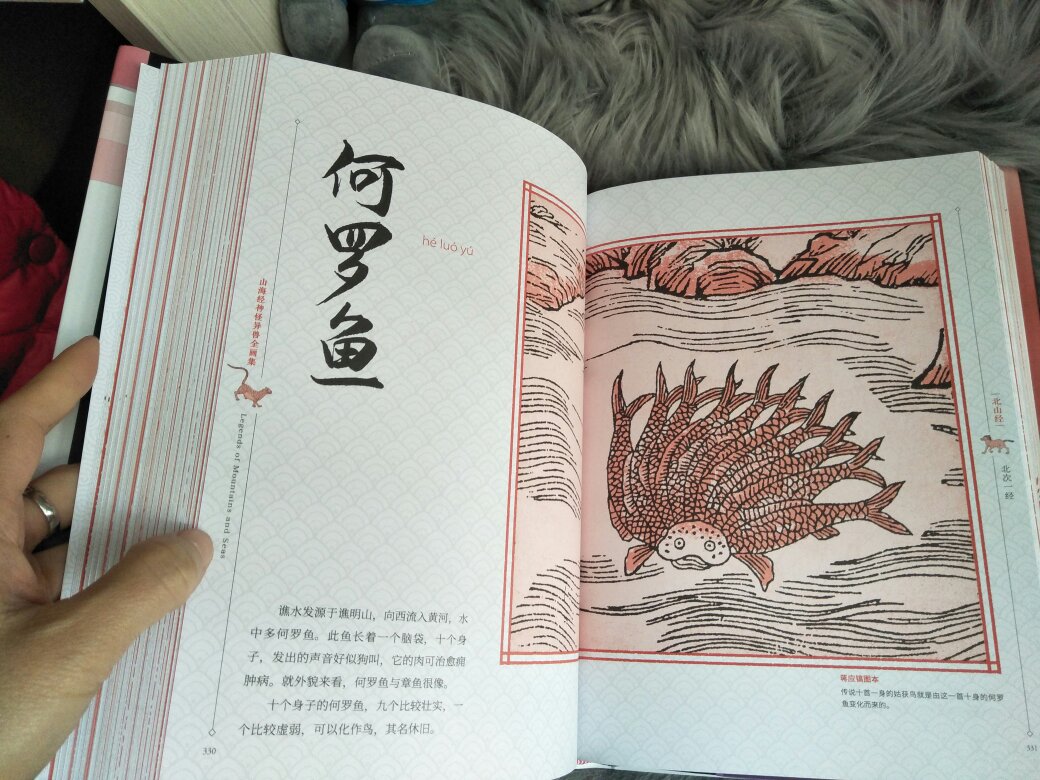 何罗鱼
hé luó yú
山海经神怪异兽全画集
Legends of Mountains and Seas
谯水发源于谯明山，向西流入黄河，水
中多何罗鱼。此鱼长着一个脑袋，十个身
子，发出的声音好似狗叫，它的肉可治愈痈
肿病。就外貌来看，何罗鱼与章鱼很像。
十个身子的何罗鱼，九个比较壮实，一
个比较虚弱，可以化作鸟，其名休旧。
330
北山经
北次一经
蒋应镐图本
传说十首一身的姑获鸟就是由这一首十身的何罗
鱼变化而来的。
331